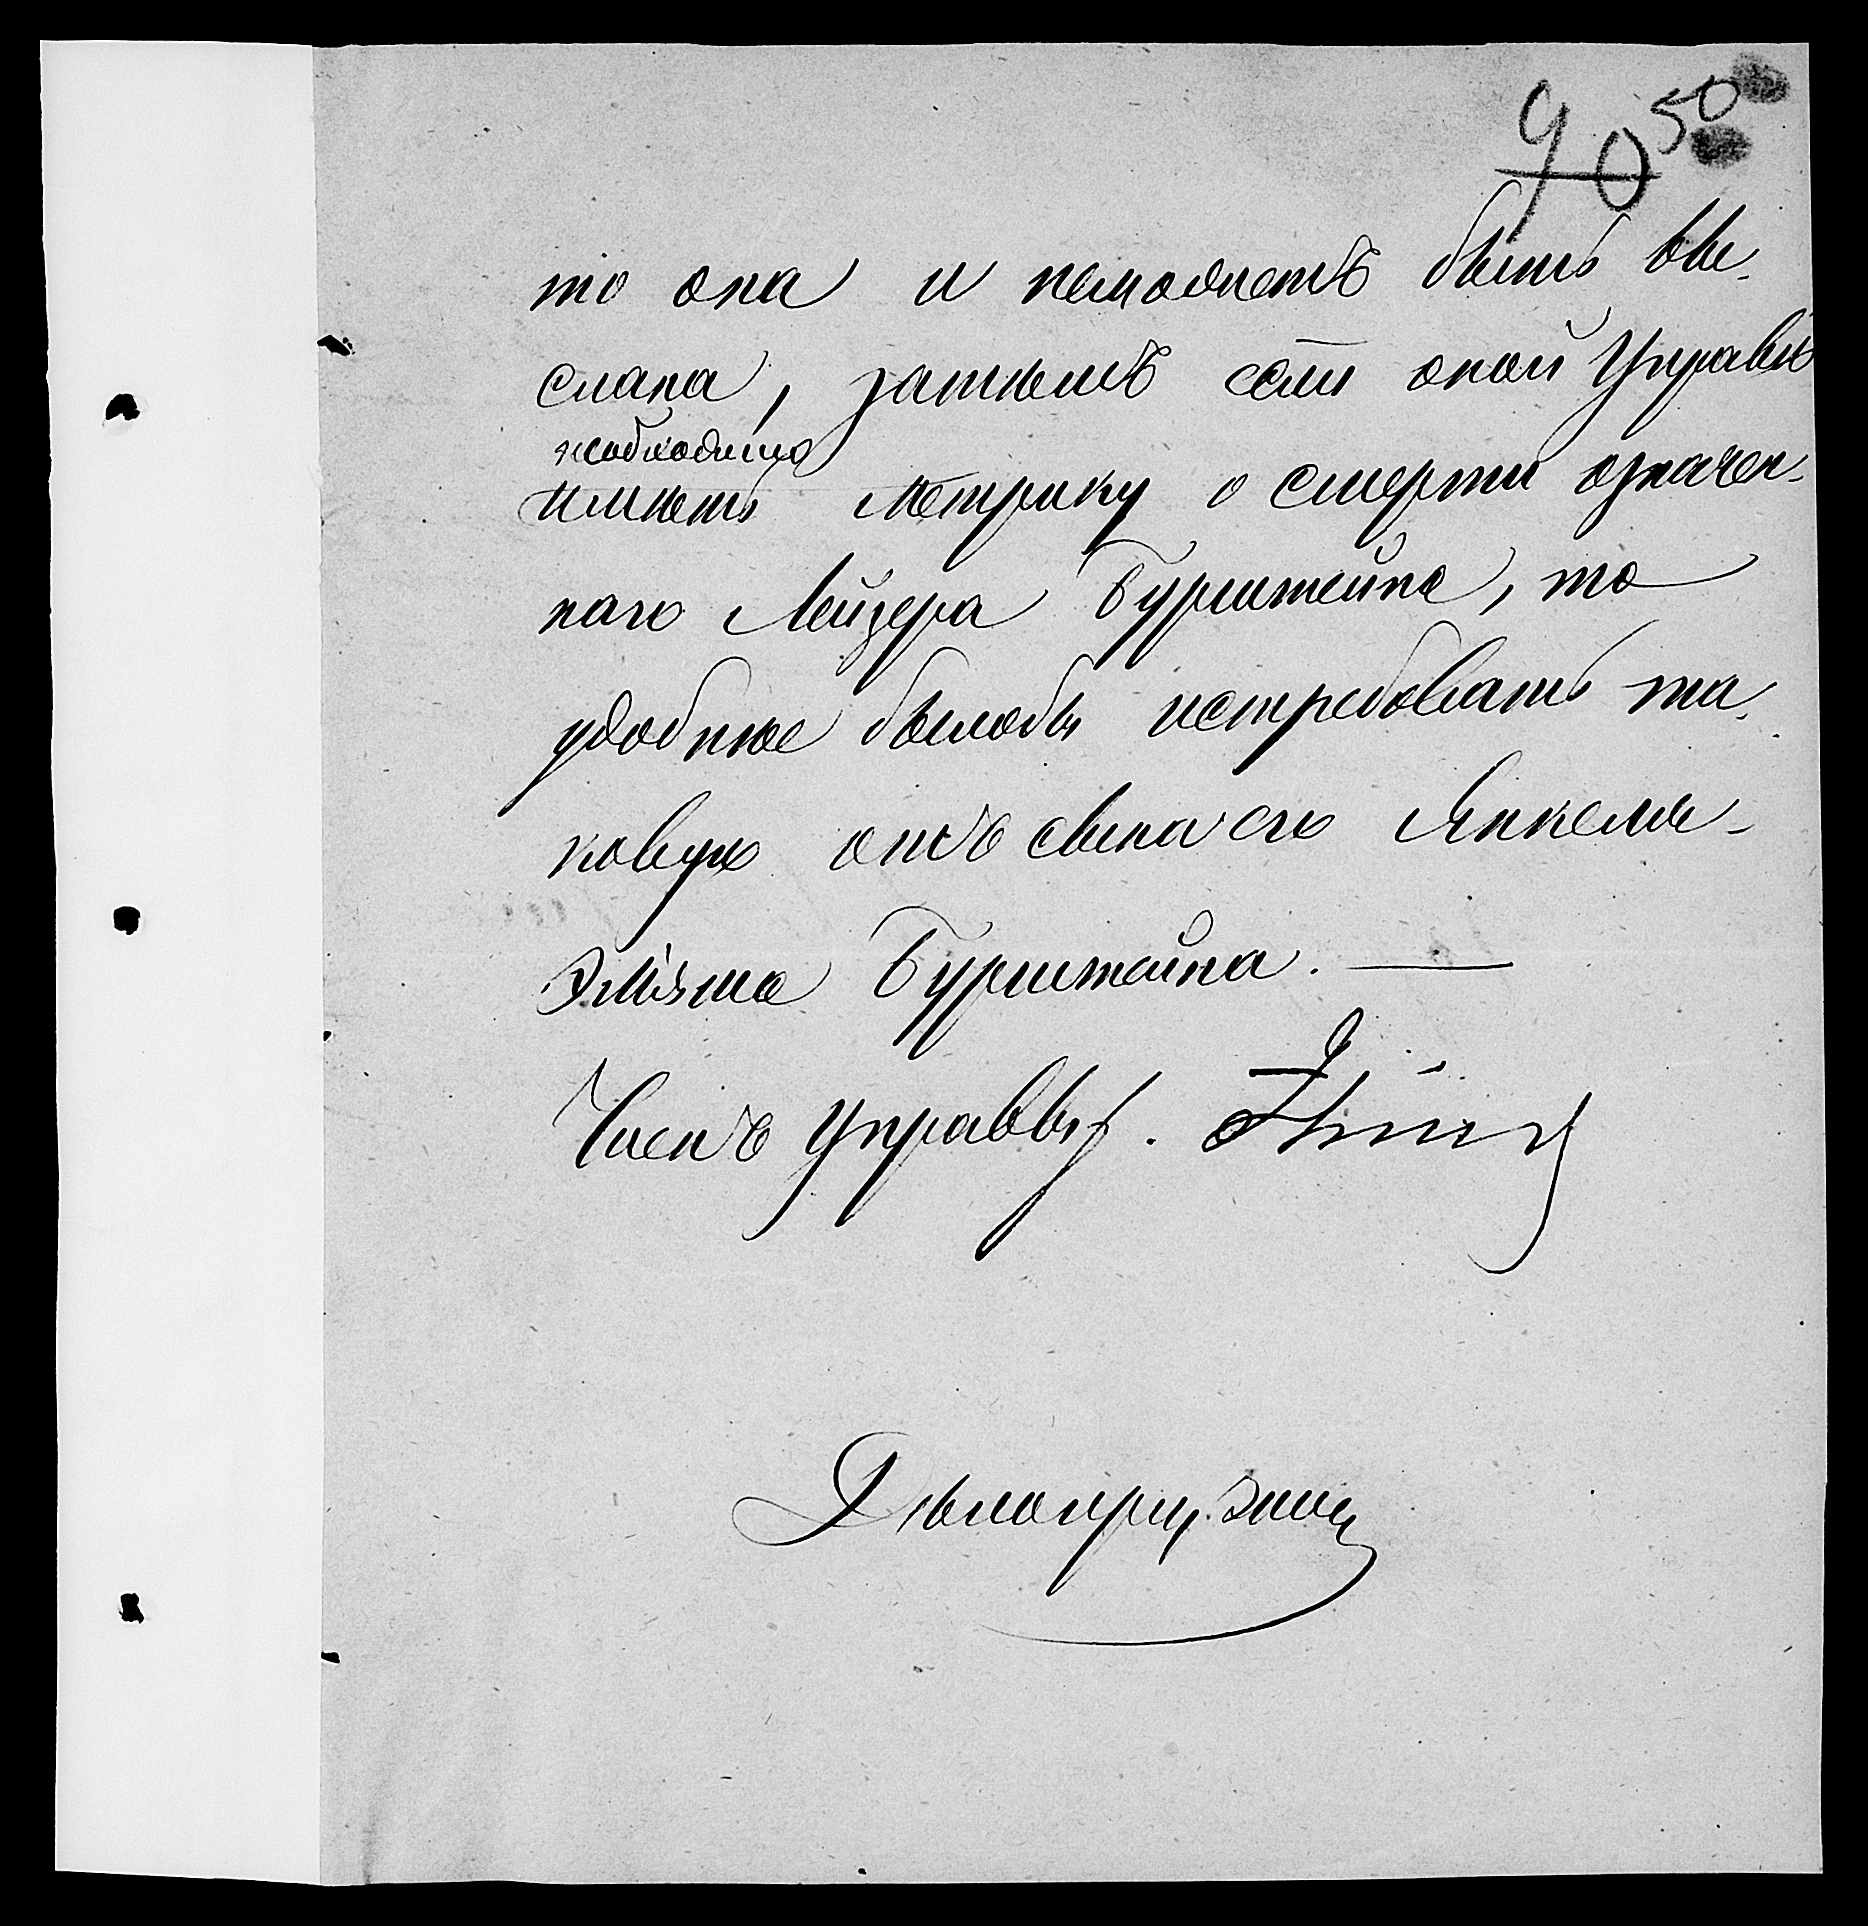 90 50
то она и неможетъ быть вы-
слана, затѣмъ если оной Управѣ
необходимо
имѣть метрику о смерти означен-
наго Лейзера Бурштейна, то
удобнѣе былобы истребовать та-
ковую отъ сына его Янкеля-
Бурштейна.
Членъ Управы
Дѣлопр